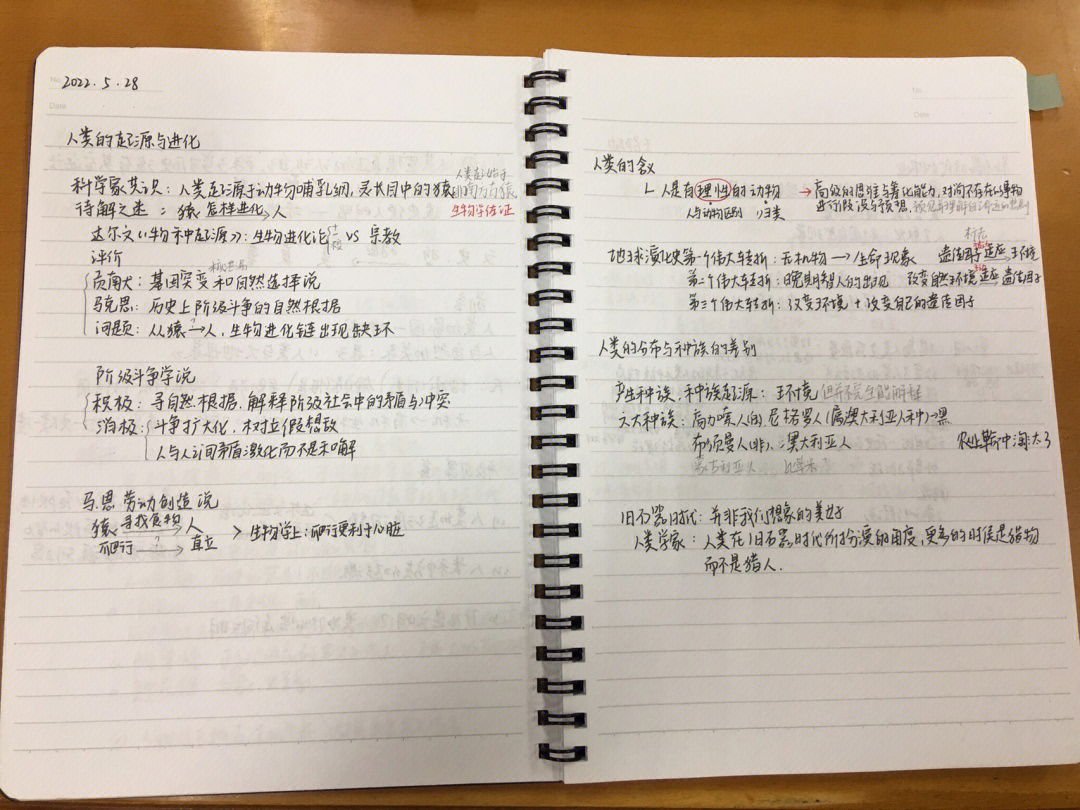 2022.5.28
人类的起源与进化
科学家共识：人类起源于动物哺乳纲，灵长目中的猿
人类在始于
南方古猿
生物学佐证
待解之迷：猿 怎样进化→ 人
达尔文《物种起源》：生物进化论 VS 宗教
评价
贡献大：基因突变和自然选择说
马克思：历史上阶级斗争的自然根据
问题：从猿 ?→ 人，生物进化链出现缺环
阶级斗争学说
积极：寻自然根据，解释阶级社会中的矛盾与冲突
消极：斗争扩大化，树立假想敌
人与人之间矛盾激化而不是和解
马.恩 劳动创造说
猿 寻找食物→ 人
爬行 ?→ 直立
> 生物学上：爬行更利于心脏
No
Date
人类的含义
人是有理性的动物
人与动物区别 归类
→ 高级的思维与筹化能力，对尚不存在的事物
进行假设与预想，
地球演化史第一个伟大转折：无机物→生命现象 遗传因子适应环境
第二个伟大转折：晚期智人的出现 改变自然环境适应遗传因子
第三个伟大转折：改变环境 + 改变自己的遗传因子
人类的分布与种族的差别
产生种族，种族起源：环境但并不完全能解释
六大种族：高加索人（白），尼格罗人（属澳大利亚人种）→黑
布须曼人（非）、澳大利亚人
蒙古利亚人
旧石器时代：并非我们想象的美好
人类学家：人类在旧石器时代所扮演的角度，更多的时候是猎物
而不是猎人.